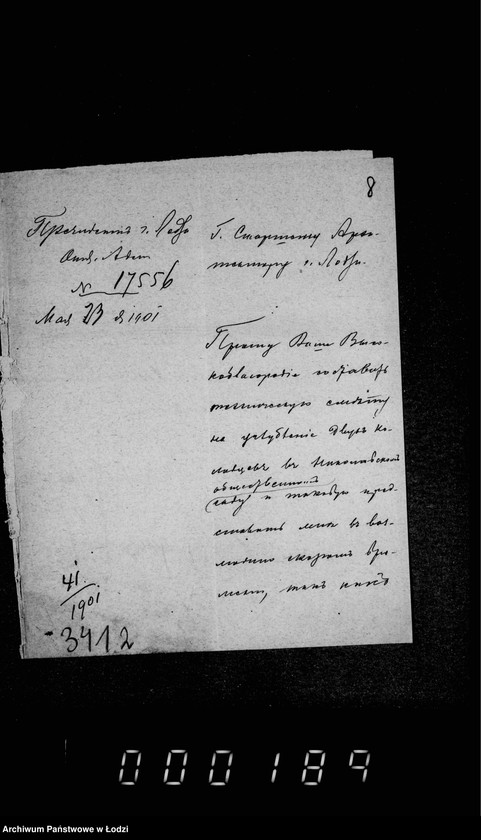 8
Президентъ г. Лодзи
Отд. Адм.
№ 17556
Мая 23 д. 1901
Г. Старшему Архи-
тектору г. Лодзи.
Прошу Ваше Высо-
коблагородіе составить
техническую смѣту
на углубленіе двухъ ко-
лодцевъ въ Николаевскомъ
общественномъ
саду и таковую пред-
ставить мнѣ въ воз-
можно скоромъ вре-
мени, такъ какъ
41
1901
3412
000189
Archiwum Państwowe w Łodzi